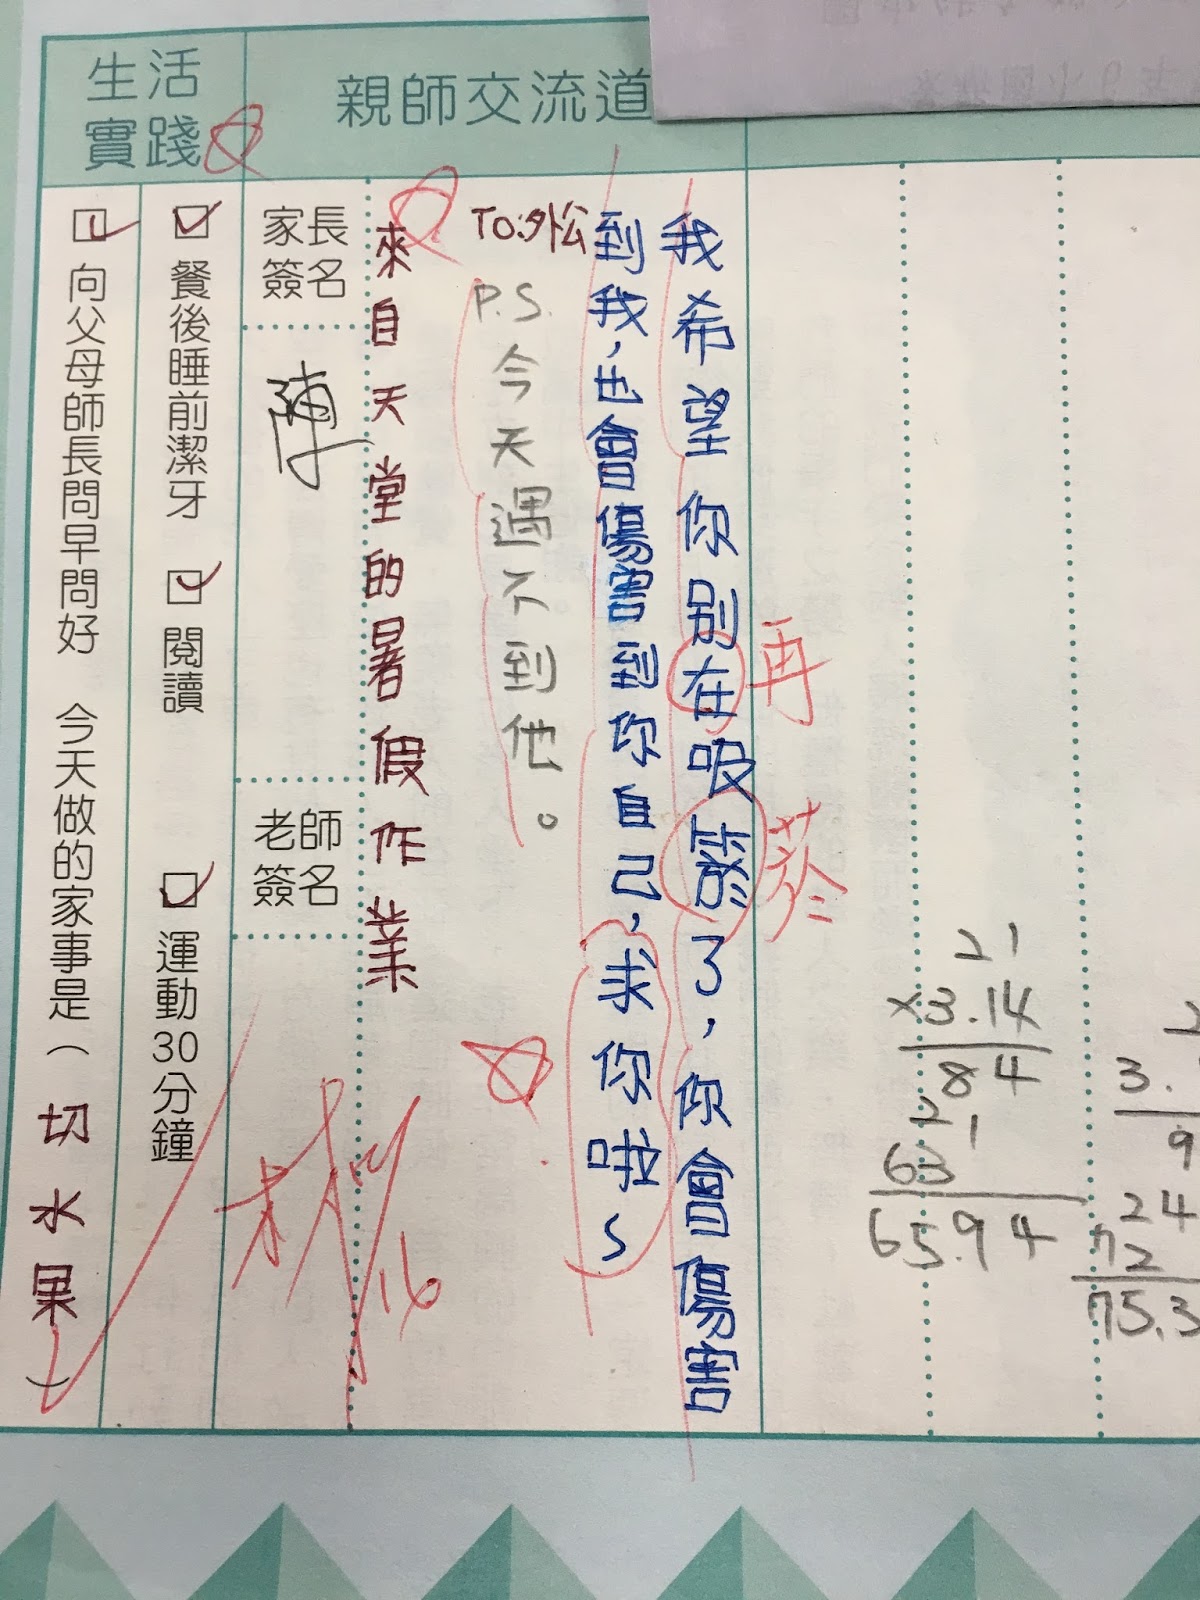 生活
實踐
親師交流道
我希望你別在吸菸了，你會傷害
到我，也會傷害到你自己，求你啦~
再
菸
TO:外公
P.S. 今天遇不到他。
來自天堂的暑假作業
家長
簽名
陳
老師
簽名
☑餐後睡前潔牙 ☑閱讀 ☑運動30分鐘
☑向父母師長問早問好 今天做的家事是(切水果)
21
×3.14
84
21
63
65.94
2
3.
9
24
72
75.3